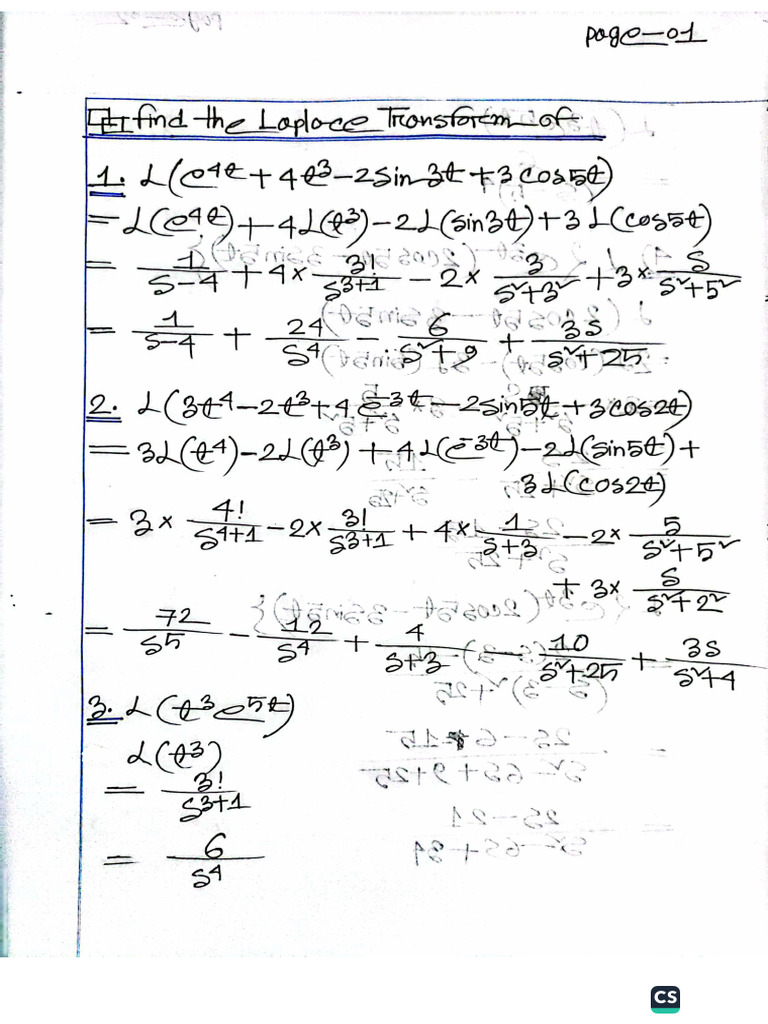 page-01
find the Laplace Transform of:
1. L(e^4t + 4t^3 - 2sin3t + 3cos5t)
= L(e^4t) + 4L(t^3) - 2L(sin3t) + 3L(cos5t)
= 1/(s-4) + 4× 3!/(s^(3+1)) - 2× 3/(s²+3²) + 3× s/(s²+5²)
= 1/(s-4) + 24/s^4 - 6/(s²+9) + 3s/(s²+25)
2. L(3t^4 - 2t^3 + 4e^-3t - 2sin5t + 3cos2t)
= 3L(t^4) - 2L(t^3) + 4L(e^-3t) - 2L(sin5t) +
3L(cos2t)
= 3× 4!/(s^(4+1)) - 2× 3!/(s^(3+1)) + 4× 1/(s+3) - 2× 5/(s²+5²)
+ 3× s/(s²+2²)
= 72/s^5 - 12/s^4 + 4/(s+3) - 10/(s²+25) + 3s/(s²+4)
3. L(t^3 e^5t)
L(t^3)
= 3!/(s^(3+1))
= 6/s^4
CS